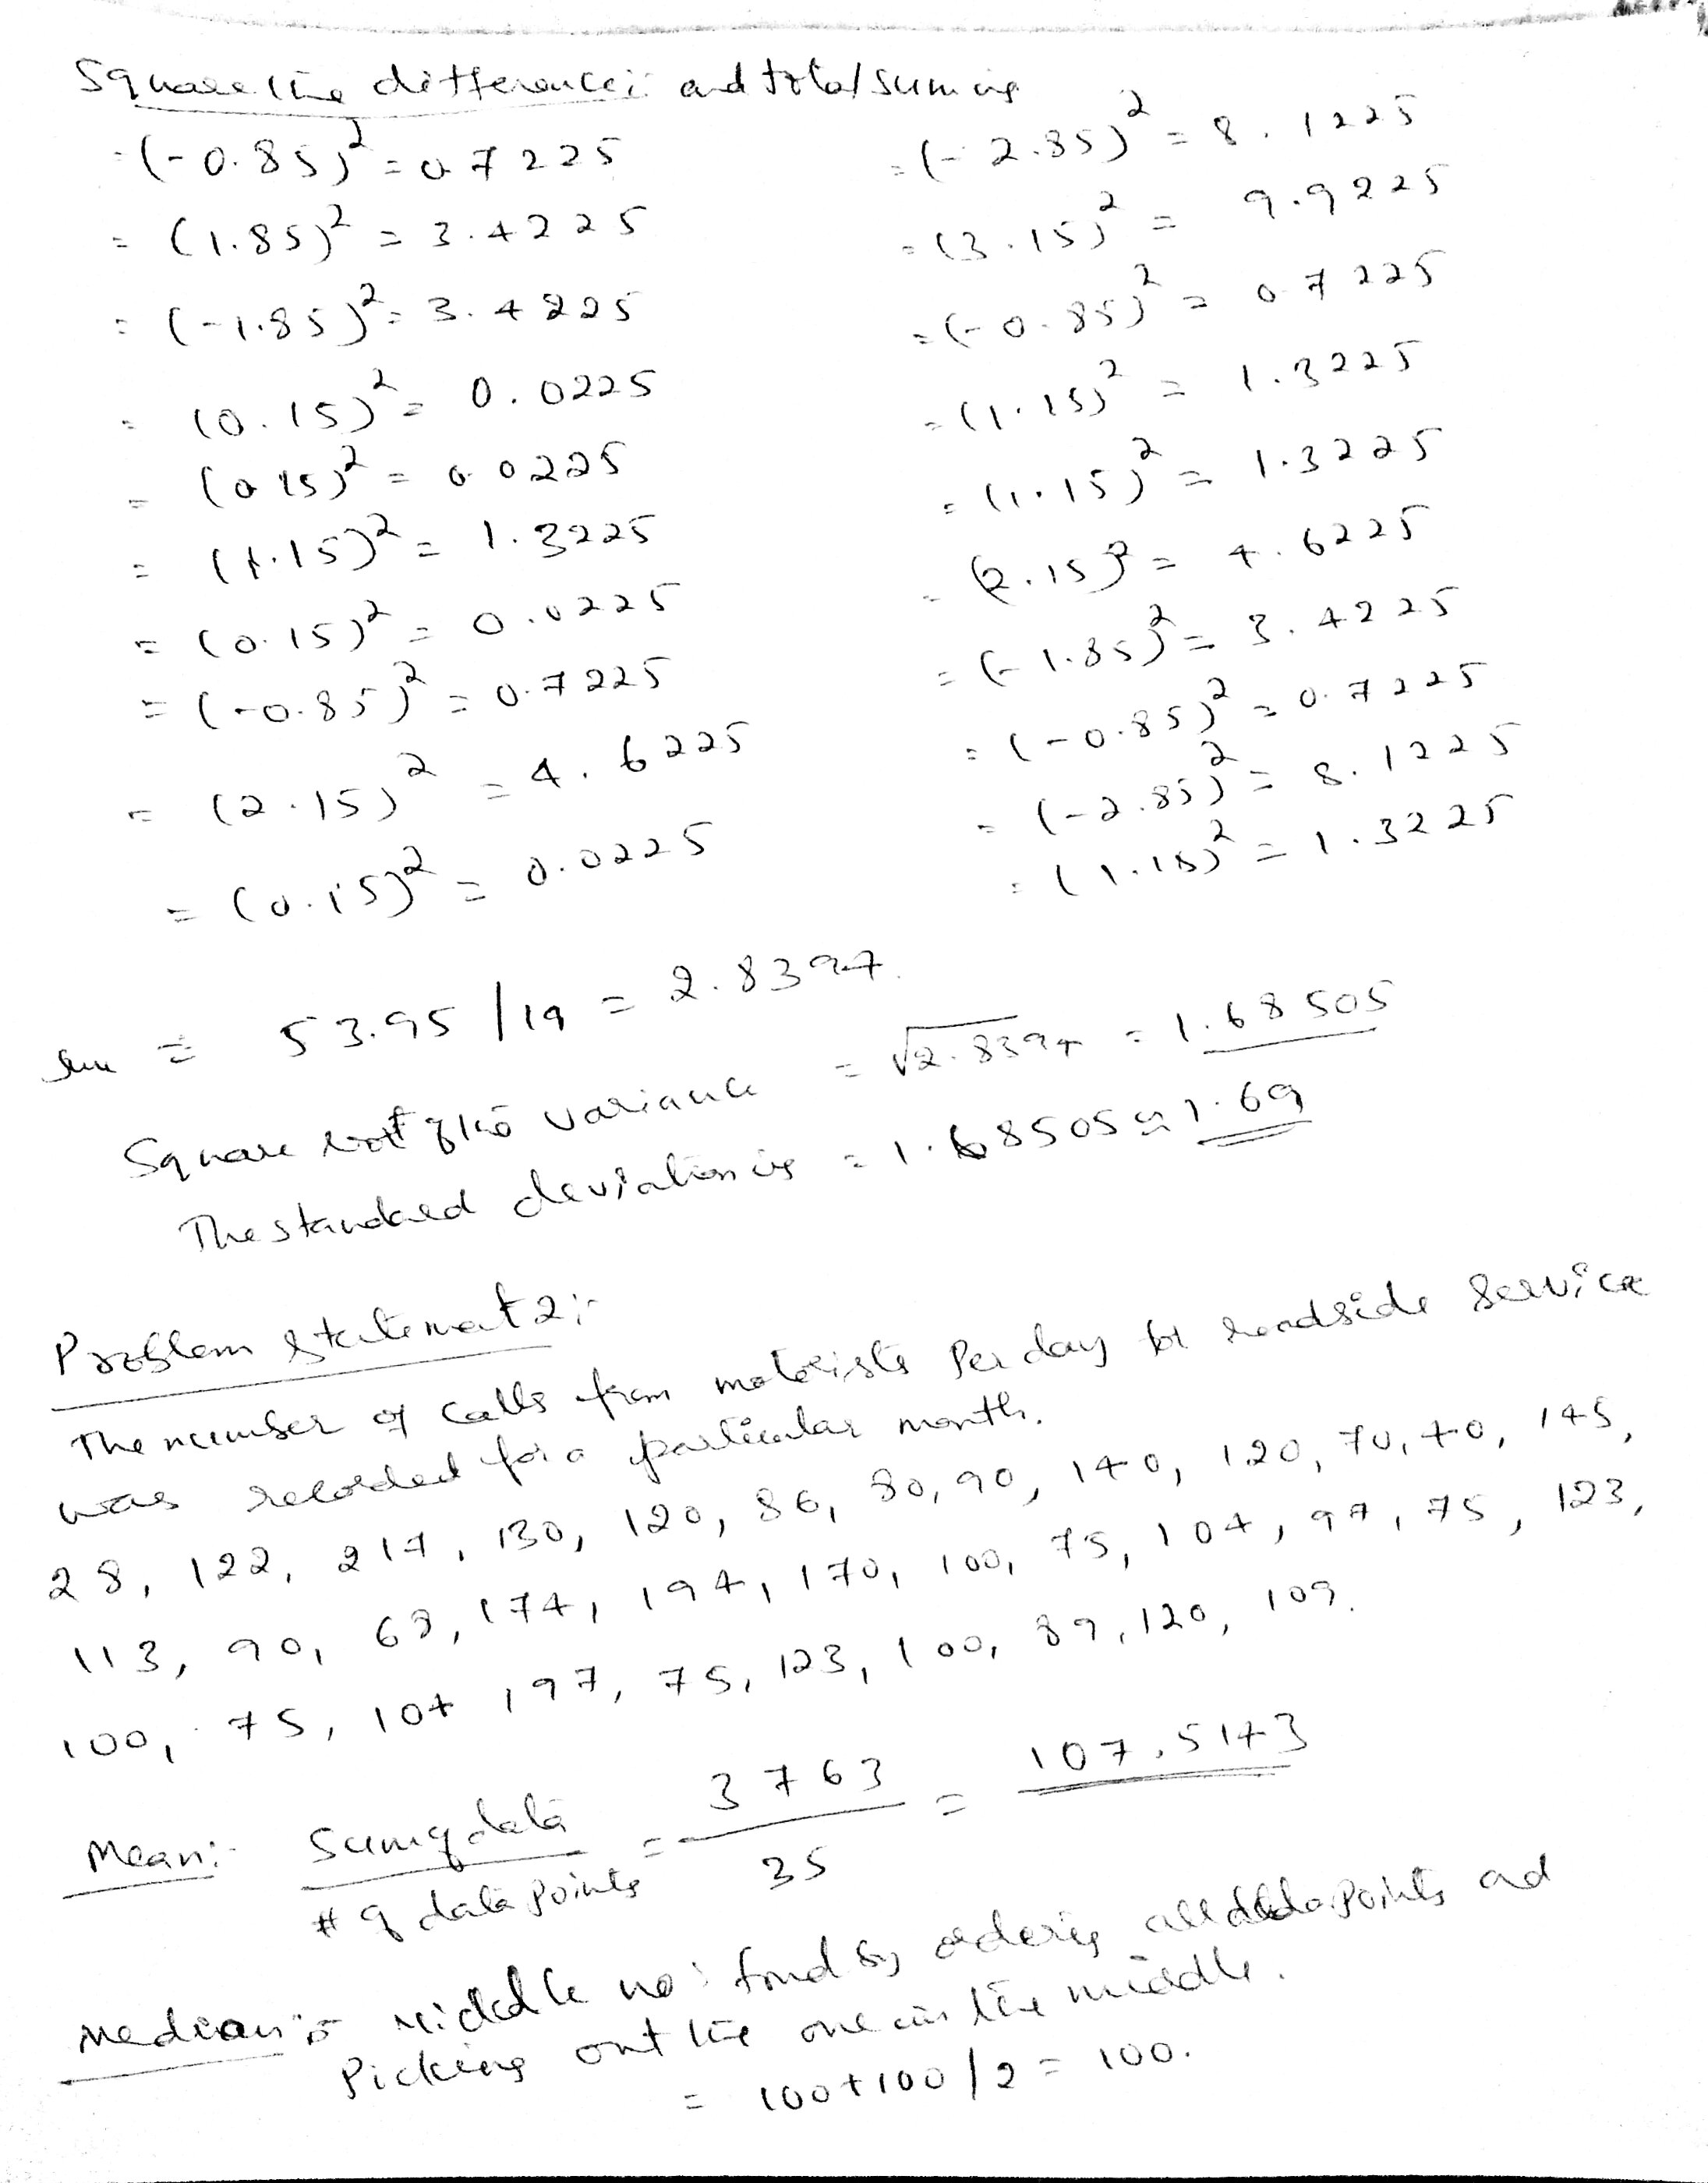 Square the differences: and total summing
= (-0.85)² = 0.7225
= (1.85)² = 3.4225
= (-1.85)² = 3.4225
= (0.15)² = 0.0225
= (0.15)² = 0.0225
= (1.15)² = 1.3225
= (0.15)² = 0.0225
= (-0.85)² = 0.7225
= (2.15)² = 4.6225
= (0.15)² = 0.0225
= (-2.85)² = 8.1225
= (3.15)² = 9.9225
= (-0.85)² = 0.7225
= (1.15)² = 1.3225
= (1.15)² = 1.3225
= (2.15)² = 4.6225
= (-1.85)² = 3.4225
= (-0.85)² = 0.7225
= (-2.85)² = 8.1225
= (1.15)² = 1.3225
Sum = 53.95 / 19 = 2.8394
Square root of the variance = √2.8394 = 1.68505
The standard deviation is = 1.68505 ≈ 1.69
Problem statement 2:-
The number of calls from motorists per day for roadside service
was recorded for a particular month.
28, 122, 217, 130, 120, 86, 80, 90, 140, 120, 70, 40, 145,
113, 90, 68, 174, 194, 170, 100, 75, 104, 97, 75, 123,
100, 75, 104, 197, 75, 123, 100, 89, 120, 109.
Mean:- Sum of data / # of data points = 3763 / 35 = 107.5143
Median:- Middle no: found by ordering all data points and
Picking out the one in the middle.
= 100+100/2 = 100.